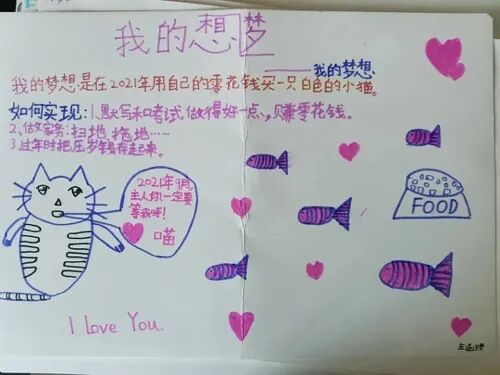 我的想梦
我的梦想
我的梦想是在2021年用自己的零花钱买一只白色的小猫。
如何实现:1、默写和考试做得好一点、赚零花钱。
2、做家务:扫地、拖地……
3、过年时把压岁钱存起来。
2021年9月,
主人你一定要
等我呀!
喵
FOOD
I love You